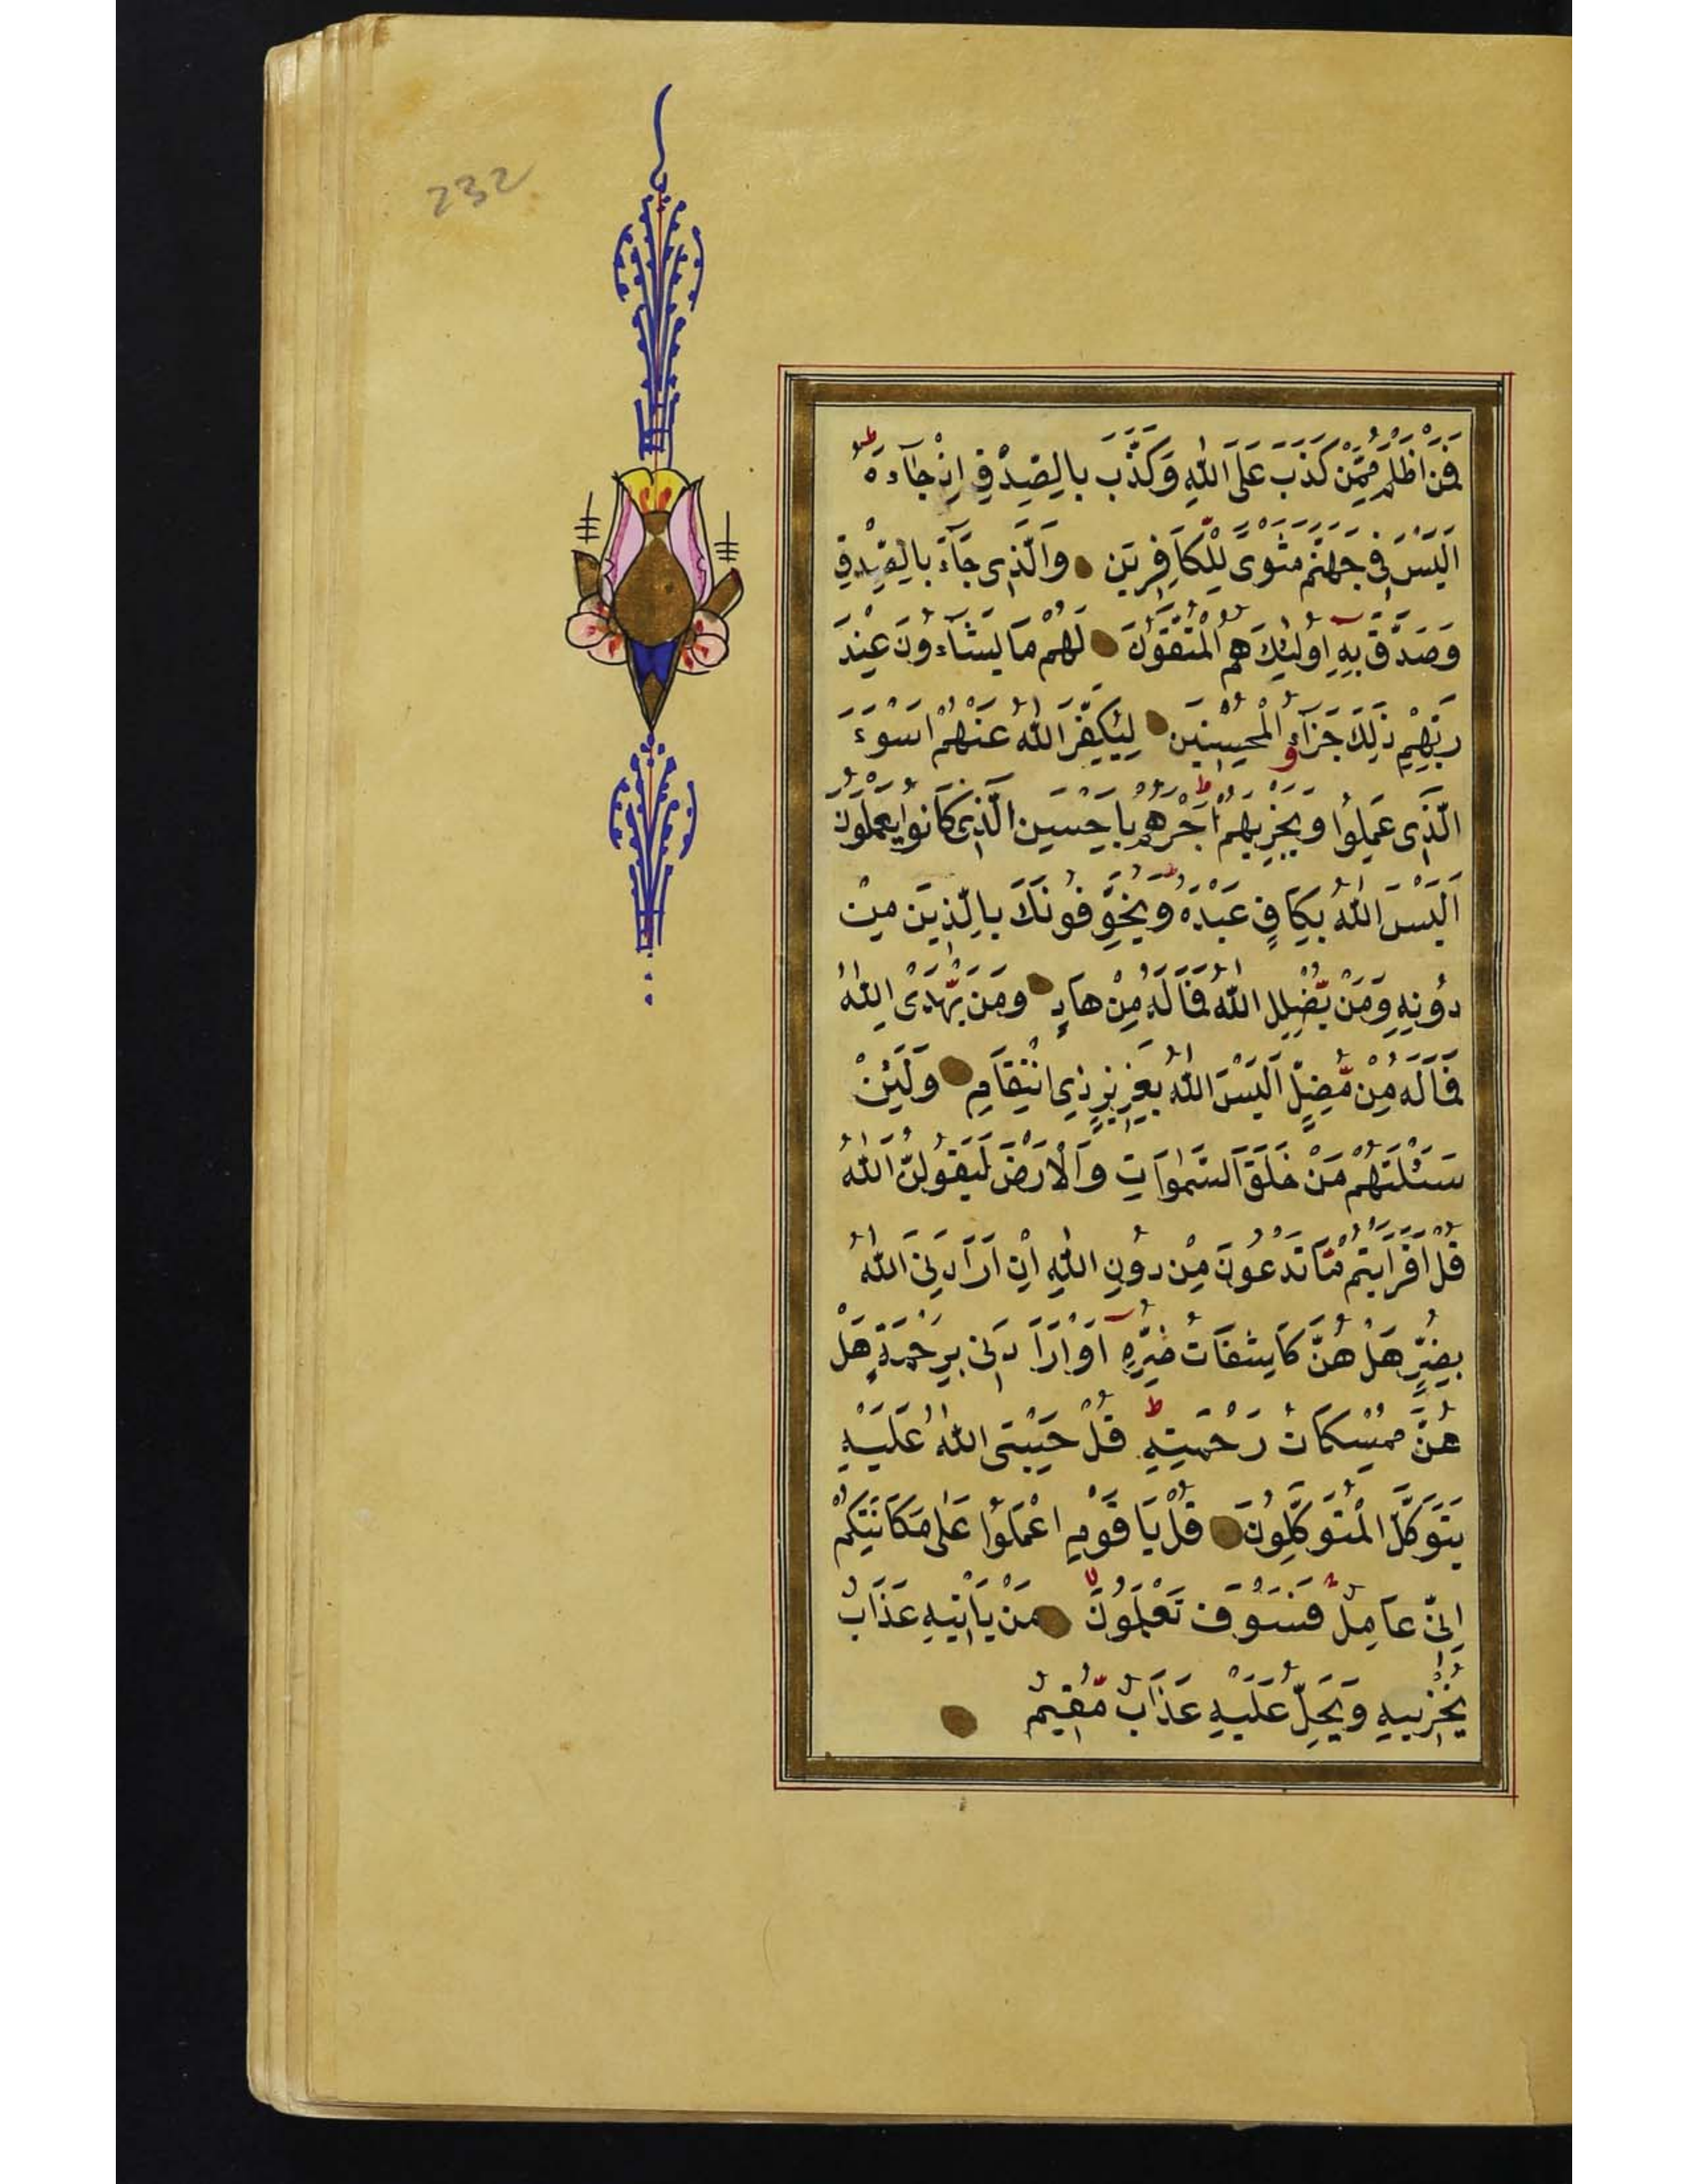 232
فَمَنْ اَظْلَمُ مِمَّنْ كَذَبَ عَلَى اللّٰهِ وَكَذَّبَ بِالصِّدْقِ اِذْ جَآءَهُ ط
اَلَيْسَ فِى جَهَنَّمَ مَثْوًى لِّلْكَافِرِيَن وَالَّذِى جَآءَ بِالصِّدْقِ
وَصَدَّقَ بِهِ اُولٰئِكَ هُمُ الْمُتَّقُونَ لَهُمْ مَا يَشَآءُونَ عِنْدَ
رَبِّهِمْ ذٰلِكَ جَزَآءُ الْمُحْسِنِيَن لِيُكَفِّرَ اللّٰهُ عَنْهُمْ اَسْوَءَ
الَّذِى عَمِلُوا وَيَجْزِيَهُمْ اَجْرَهُمْ بِاَحْسَنِ الَّذِى كَانُوا يَعْمَلُونَ
اَلَيْسَ اللّٰهُ بِكَافٍ عَبْدَهُ ط وَيُخَوِّفُونَكَ بِالَّذِينَ مِنْ
دُونِهِ وَمَنْ يُّضْلِلِ اللّٰهُ فَمَا لَهُ مِنْ هَادٍ وَمَنْ يَّهْدِى اللّٰهُ
فَمَا لَهُ مِنْ مُّضِلٍّ اَلَيْسَ اللّٰهُ بِعَزِيزٍ ذِى انْتِقَامٍ وَلَئِنْ
سَئَلْتَهُمْ مَنْ خَلَقَ السَّمٰوَاتِ وَالْاَرْضَ لَيَقُولُنَّ اللّٰهُ
قُلْ اَفَرَاَيْتُمْ مَّا تَدْعُونَ مِنْ دُونِ اللّٰهِ اِنْ اَرَادَنِىَ اللّٰهُ
بِضُرٍّ هَلْ هُنَّ كَاشِفَاتُ ضُرِّهِ اَوْ اَرَادَنِى بِرَحْمَةٍ هَلْ
هُنَّ مُمْسِكَاتُ رَحْمَتِهِ ط قُلْ حَسْبِىَ اللّٰهُ عَلَيْهِ
يَتَوَكَّلُ الْمُتَوَكِّلُونَ قُلْ يَا قَوْمِ اعْمَلُوا عَلٰى مَكَانَتِكُمْ
اِنِّى عَامِلٌ فَسَوْفَ تَعْلَمُونَ لا مَنْ يَاْتِيهِ عَذَابٌ
يُخْزِيهِ وَيَحِلُّ عَلَيْهِ عَذَابٌ مُّقِيمٌ